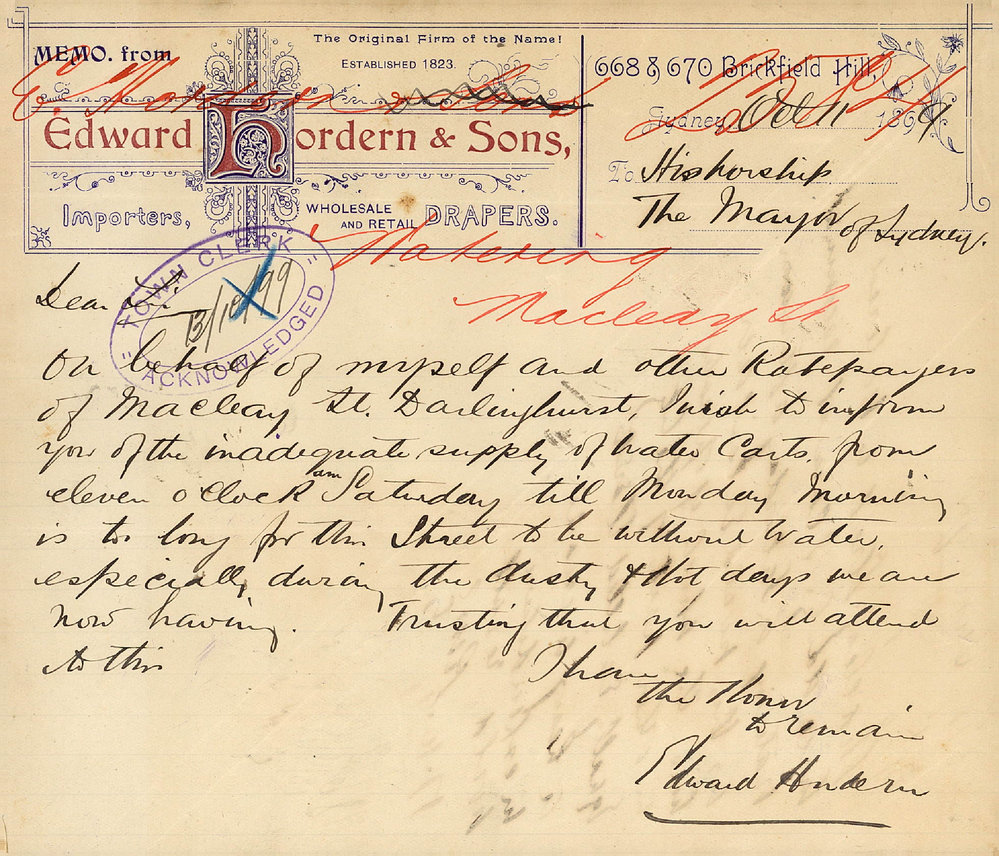 MEMO. from
The Original Firm of the Name!
ESTABLISHED 1823.
Edward Hordern & Sons,
Importers, WHOLESALE AND RETAIL DRAPERS.
668 & 670 Brickfield Hill,
Sydney, Oct 11 1899
To His Worship
The Mayor of Sydney.
E Hordern
Watering
Macleay St
TOWN CLERK
13/10/99
ACKNOWLEDGED
Dear Sir
On behalf of myself and other Ratepayers
of Macleay St. Darlinghurst, I wish to inform
you of the inadequate supply of Water Carts. from
eleven o'clock am Saturday till Monday Morning
is too long for this Street to be without Water,
especially during the dusty & Hot days we are
now having. Trusting that you will attend
to this
I have
the Honor
to remain
Edward Hordern